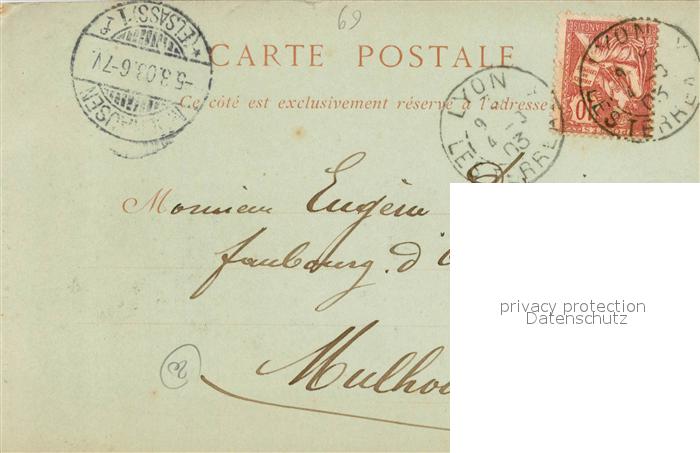 69
CARTE POSTALE
Ce côté est exclusivement réservé à l'adresse
(ELSASS) 1
5.3.03.6-7V.
HAUSEN
LYON
LES TERREAUX
4
03
LYON
LES TERREAUX
03
10
POSTES
Monsieur Eugèn
faubourg d'
Mulhou
privacy protection
Datenschutz